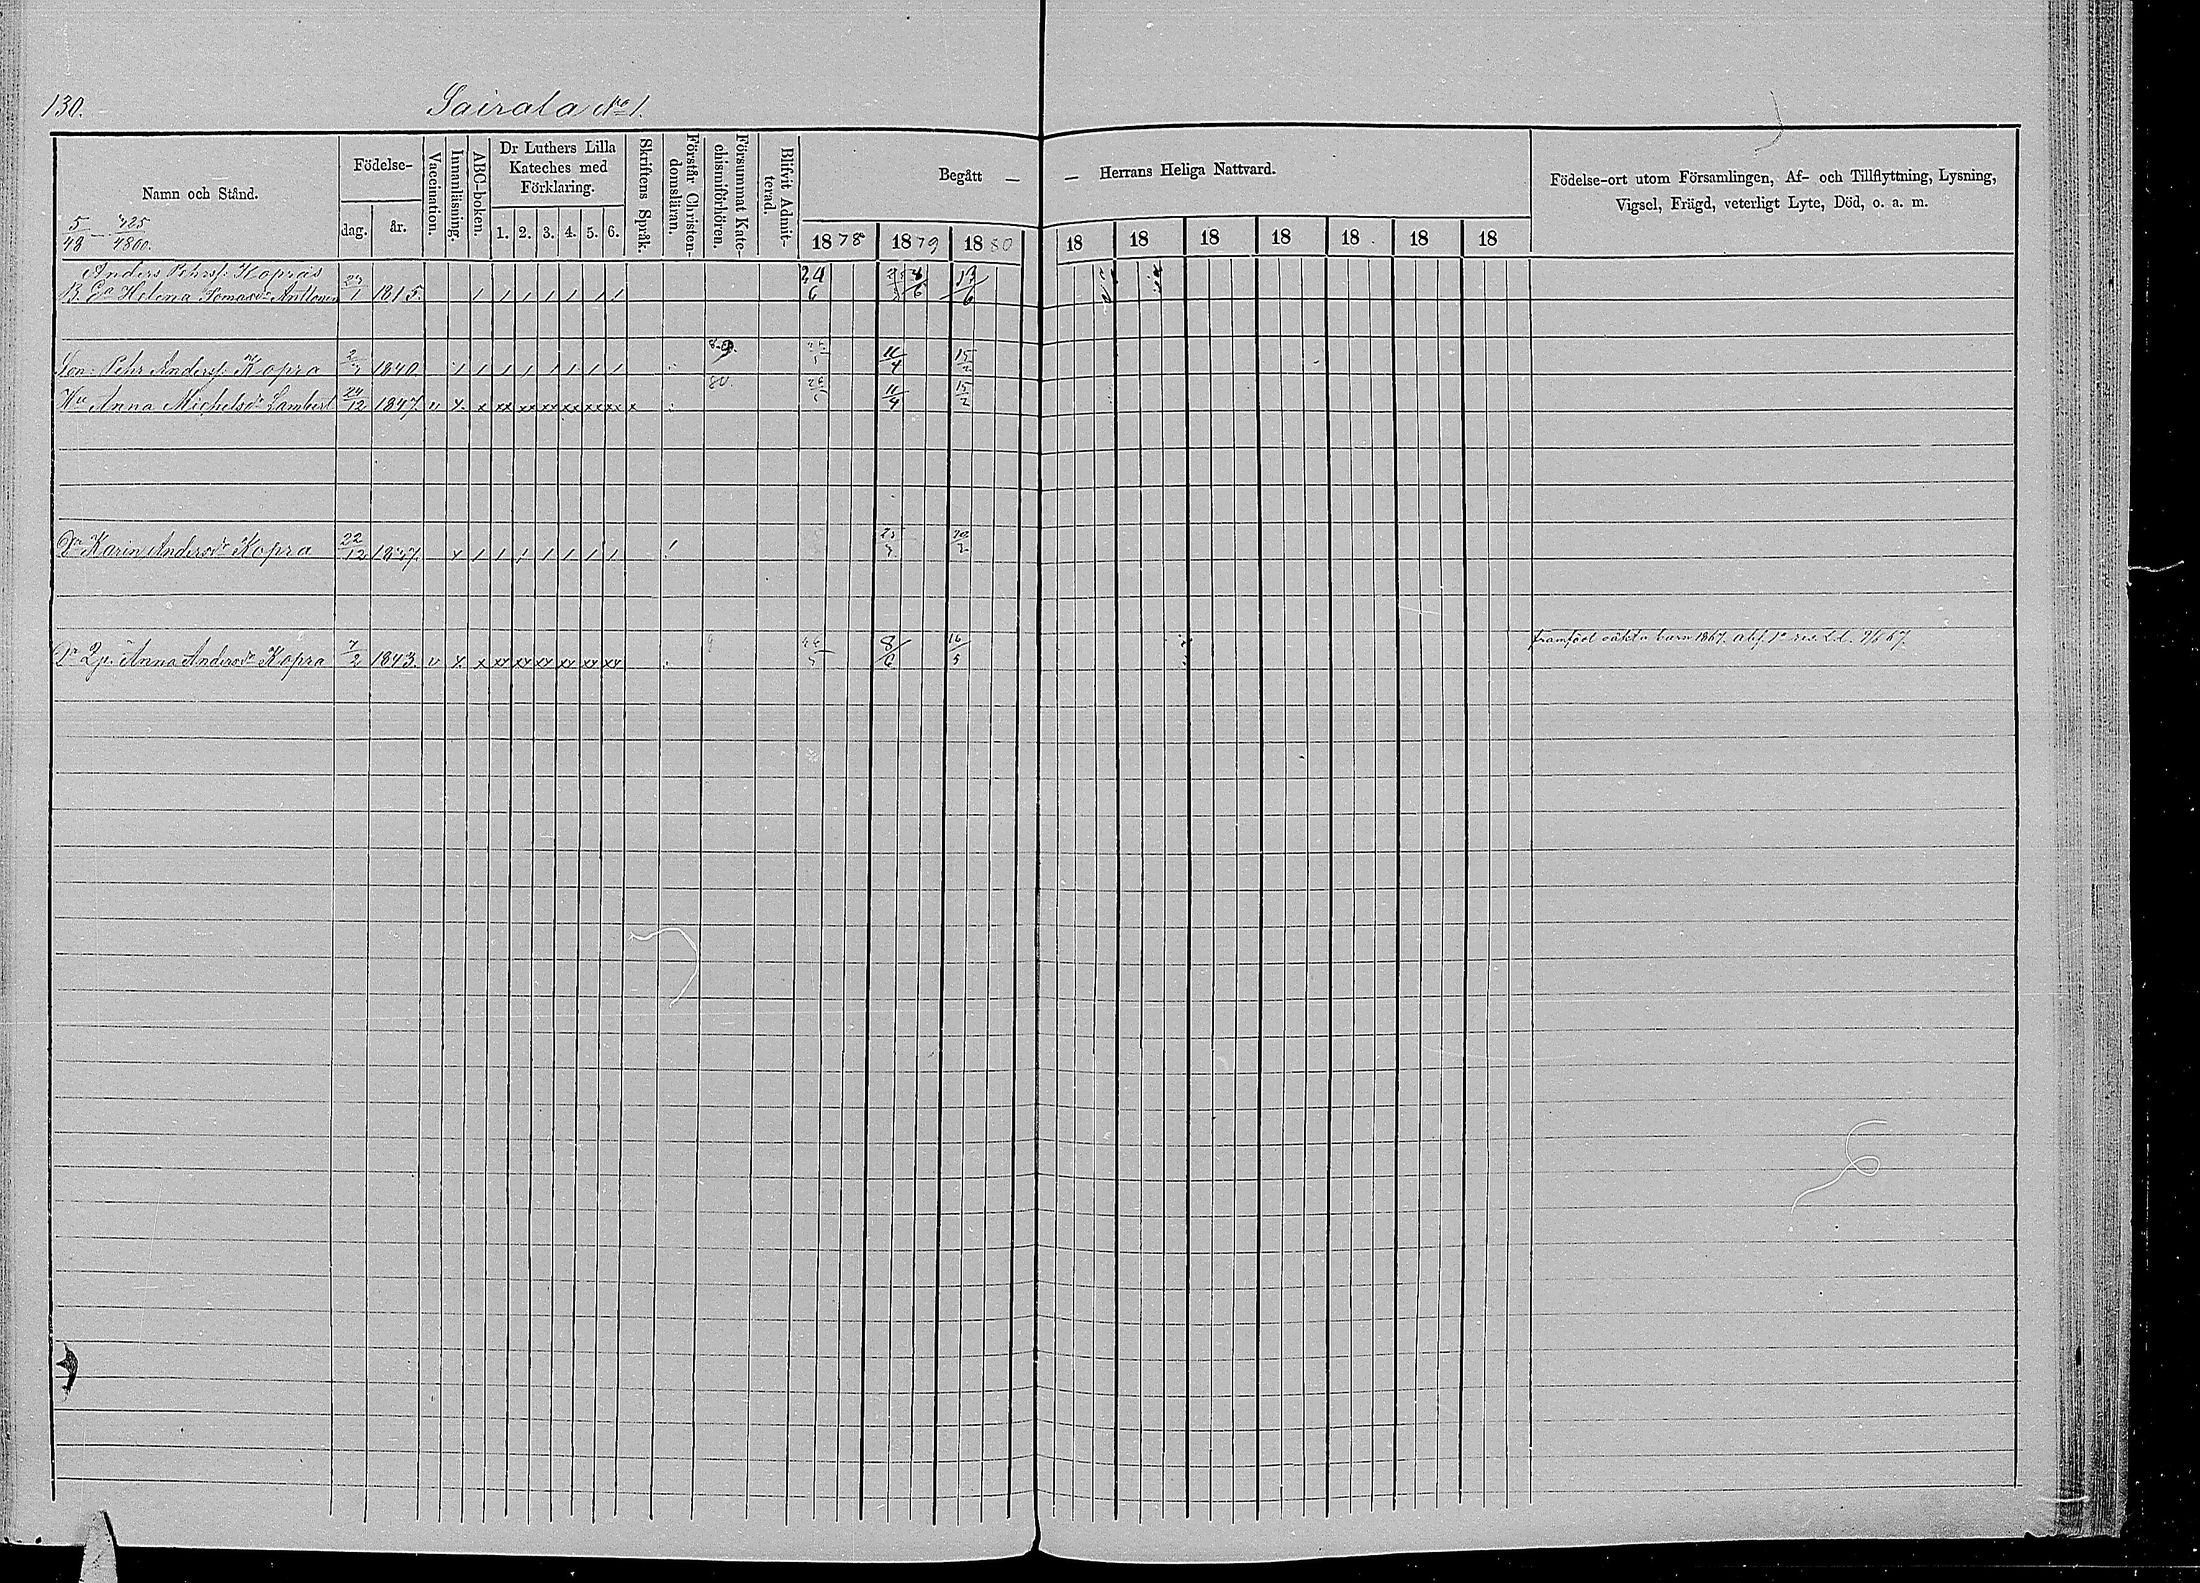 130. Sairala No 1.
Namn och Stånd.
Födelse-
dag. år.
Vaccination.
Innanläsning.
ABC-boken.
Dr Luthers Lilla
Kateches med
Förklaring.
1. 2. 3. 4. 5. 6.
Skriftens Språk.
Förstår Christen-
domsläran.
Försummat Kate-
chismiförhören.
Blifvit Admit-
terad.
Begått — — Herrans Heliga Nattvard.
1878 1879 1880 18 18 18 18 18 18 18
Födelse-ort utom Församlingen, Af- och Tillflyttning, Lysning,
Vigsel, Frägd, veterligt Lyte, Död, o. a. m.
5/48 — 425/4800.
Anders Pehrss: Kopras
Helena Tomasdr Anttonen 1815.
24/6 13/6
Son: Pehr Anderss: Kopra 1840 11/4 15/2
Hu Anna Michelsdr Lambert 24/12 1847. v x x xx xx xx xx xx xx x 80. 11/4 15/2
Dr Karin Andersdr Kopra 22/12 x
Anna Andersdr Kopra 7/2 1843. v x x xx xx xx xx xx xx 8/6 16/5
framfödt oäkta barn 1867.